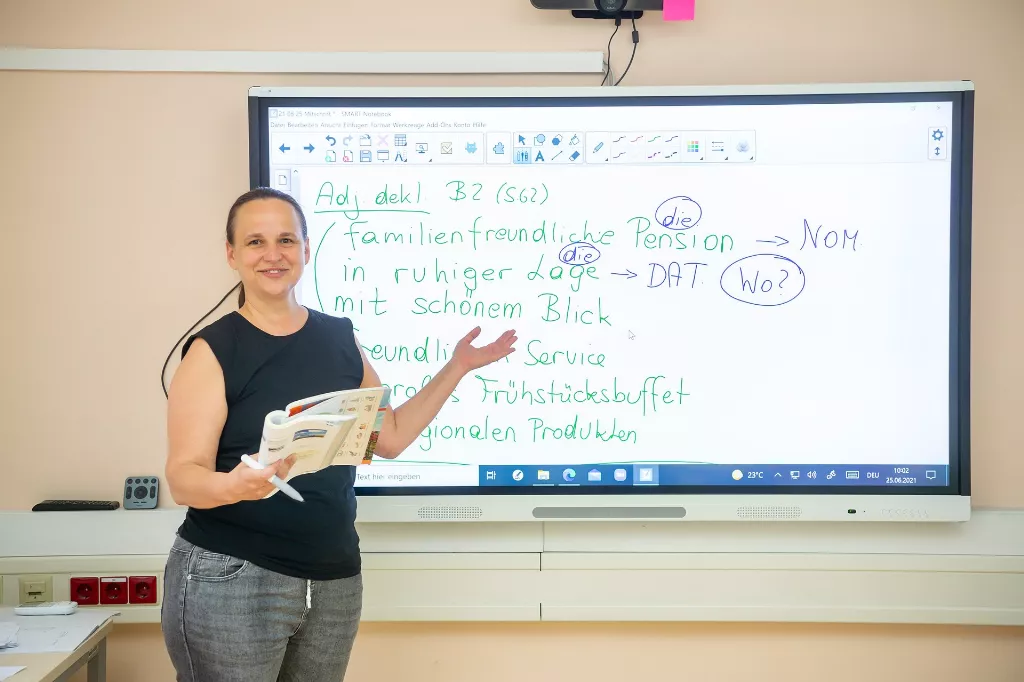 SMART Notebook
Datei Bearbeiten Ansicht Einfügen Format Werkzeuge Add-Ons Konto Hilfe
Adj. dekl. B2 (S.62)
die
familienfreundliche Pension → NOM.
die
in ruhiger Lage → DAT. Wo?
mit schönem Blick
Service
Frühstücksbuffet
Produkten
Text hier eingeben
23°C
DEU
10:02
25.06.2021